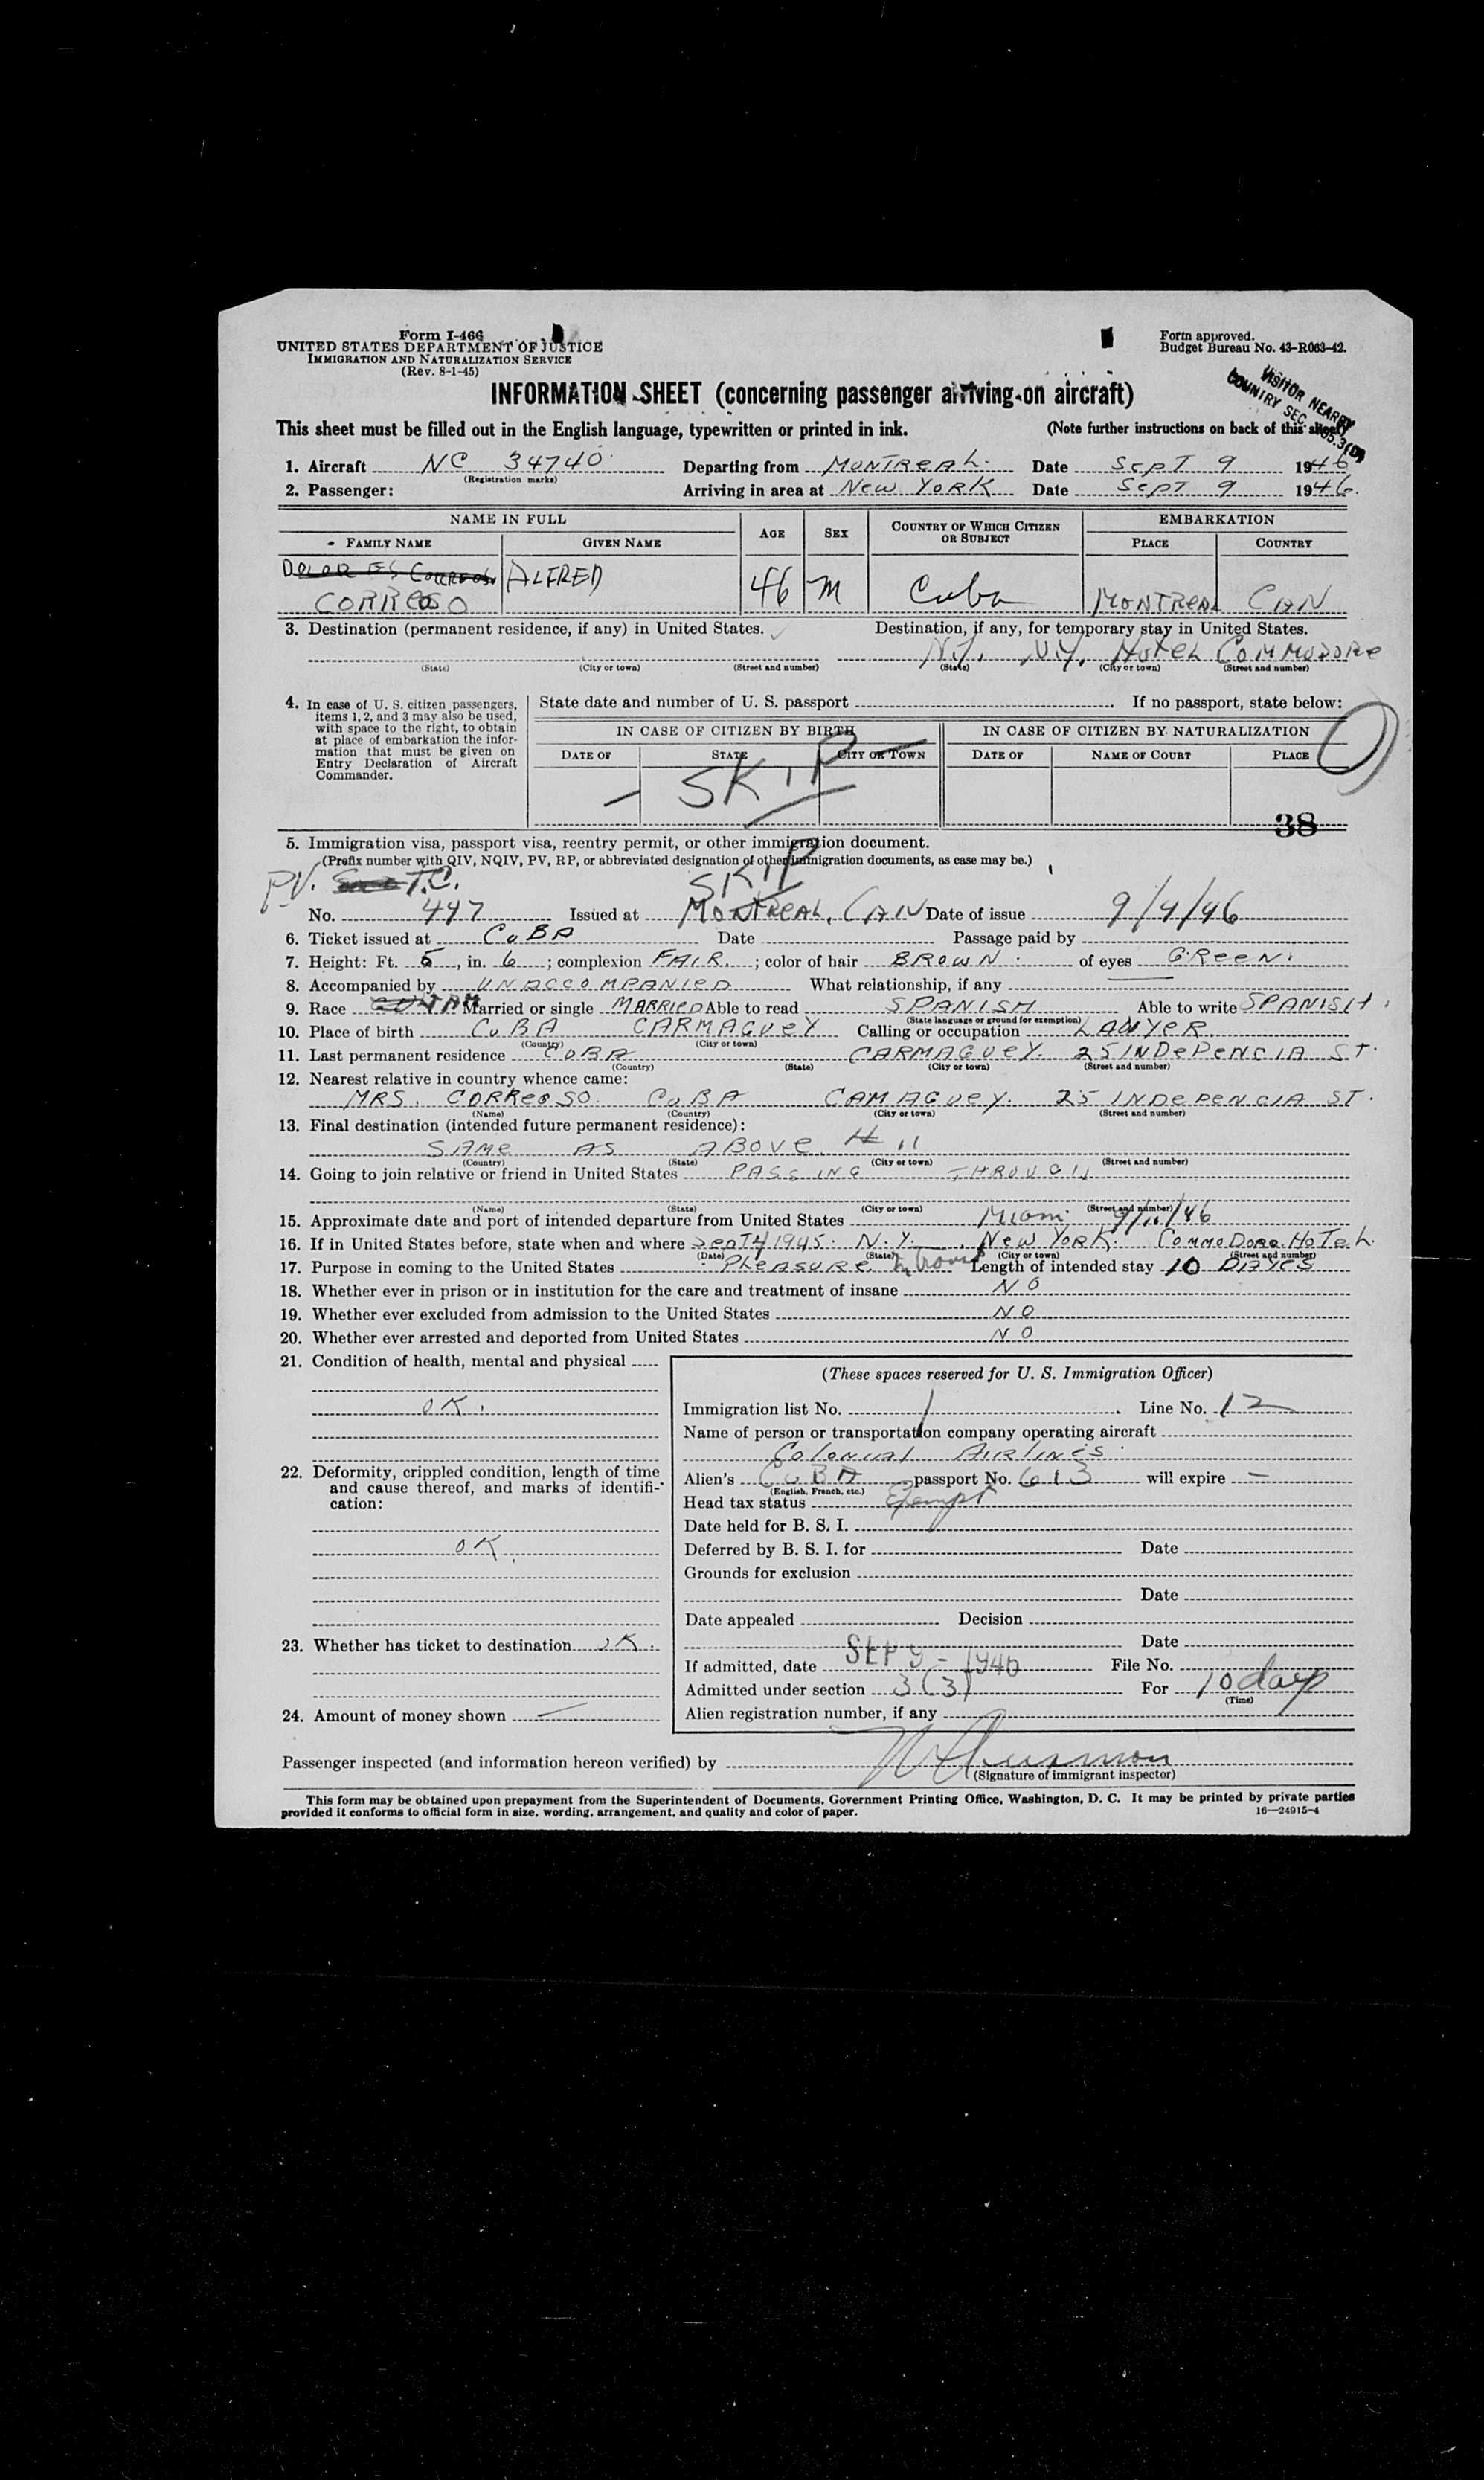 Form I-466
UNITED STATES DEPARTMENT OF JUSTICE
IMMIGRATION AND NATURALIZATION SERVICE
(Rev. 8-1-45)
Form approved.
Budget Bureau No. 43-R063-42.
INFORMATION SHEET (concerning passenger arriving on aircraft)
VISITOR NEARBY
COUNTRY SEC.
This sheet must be filled out in the English language, typewritten or printed in ink. (Note further instructions on back of this sheet)
1. Aircraft NC 34740 Departing from MONTREAL Date SEPT 9 1946
(Registration marks)
2. Passenger: Arriving in area at NEW YORK Date SEPT 9 1946.
NAME IN FULL AGE SEX COUNTRY OF WHICH CITIZEN OR SUBJECT EMBARKATION
FAMILY NAME GIVEN NAME PLACE COUNTRY
ALFRED 46 M Cuba MONTREAL CAN
CORREOSO
3. Destination (permanent residence, if any) in United States. Destination, if any, for temporary stay in United States.
N.Y. N.Y. HOTEL COMMODORE
(State) (City or town) (Street and number) (State) (City or town) (Street and number)
4. In case of U. S. citizen passengers, items 1, 2, and 3 may also be used, with space to the right, to obtain at place of embarkation the information that must be given on Entry Declaration of Aircraft Commander.
State date and number of U. S. passport If no passport, state below:
IN CASE OF CITIZEN BY BIRTH IN CASE OF CITIZEN BY NATURALIZATION
DATE OF STATE CITY OR TOWN DATE OF NAME OF COURT PLACE
SKIP
38
5. Immigration visa, passport visa, reentry permit, or other immigration document.
(Prefix number with QIV, NQIV, PV, RP, or abbreviated designation of other immigration documents, as case may be.)
P.V. T.C. SKIP
No. 447 Issued at MONTREAL, CAN Date of issue 9/4/46
6. Ticket issued at CUBA Date Passage paid by
7. Height: Ft. 5, in. 6; complexion FAIR.; color of hair BROWN of eyes GREEN.
8. Accompanied by UNACCOMPANIED What relationship, if any
9. Race Married or single MARRIED Able to read SPANISH Able to write SPANISH.
(State language or ground for exemption)
10. Place of birth CUBA CARMAGUEY Calling or occupation LAWYER
(Country) (City or town)
11. Last permanent residence CUBA CARMAGUEY. 25 INDEPENCIA ST.
(Country) (State) (City or town) (Street and number)
12. Nearest relative in country whence came:
MRS. CORREOSO. CUBA CAMAGUEY. 25 INDEPENCIA ST.
(Name) (Country) (City or town) (Street and number)
13. Final destination (intended future permanent residence):
SAME AS ABOVE # 11
(Country) (State) (City or town) (Street and number)
14. Going to join relative or friend in United States PASSING THROUGH
(Name) (State) (City or town) (Street and number)
15. Approximate date and port of intended departure from United States Miami
16. If in United States before, state when and where SEPT 4 1945. N.Y. NEW YORK. COMMODORE HOTEL.
(Date) (State) (City or town) (Street and number)
17. Purpose in coming to the United States PLEASURE Length of intended stay 10 DAYES
18. Whether ever in prison or in institution for the care and treatment of insane NO
19. Whether ever excluded from admission to the United States NO
20. Whether ever arrested and deported from United States NO
21. Condition of health, mental and physical
OK.
22. Deformity, crippled condition, length of time and cause thereof, and marks of identification:
OK.
23. Whether has ticket to destination OK.
24. Amount of money shown —
(These spaces reserved for U. S. Immigration Officer)
Immigration list No. 1 Line No. 12
Name of person or transportation company operating aircraft
Colonial AIRLINES
Alien's CUBA passport No. 613 will expire —
(English, French, etc.)
Head tax status Exempt
Date held for B. S. I.
Deferred by B. S. I. for Date
Grounds for exclusion
Date
Date appealed Decision
Date
If admitted, date SEP 9 - 1946 File No.
Admitted under section 3(3) For 10 days
(Time)
Alien registration number, if any
Passenger inspected (and information hereon verified) by
(Signature of immigrant inspector)
This form may be obtained upon prepayment from the Superintendent of Documents, Government Printing Office, Washington, D. C. It may be printed by private parties
provided it conforms to official form in size, wording, arrangement, and quality and color of paper. 16—24915-4